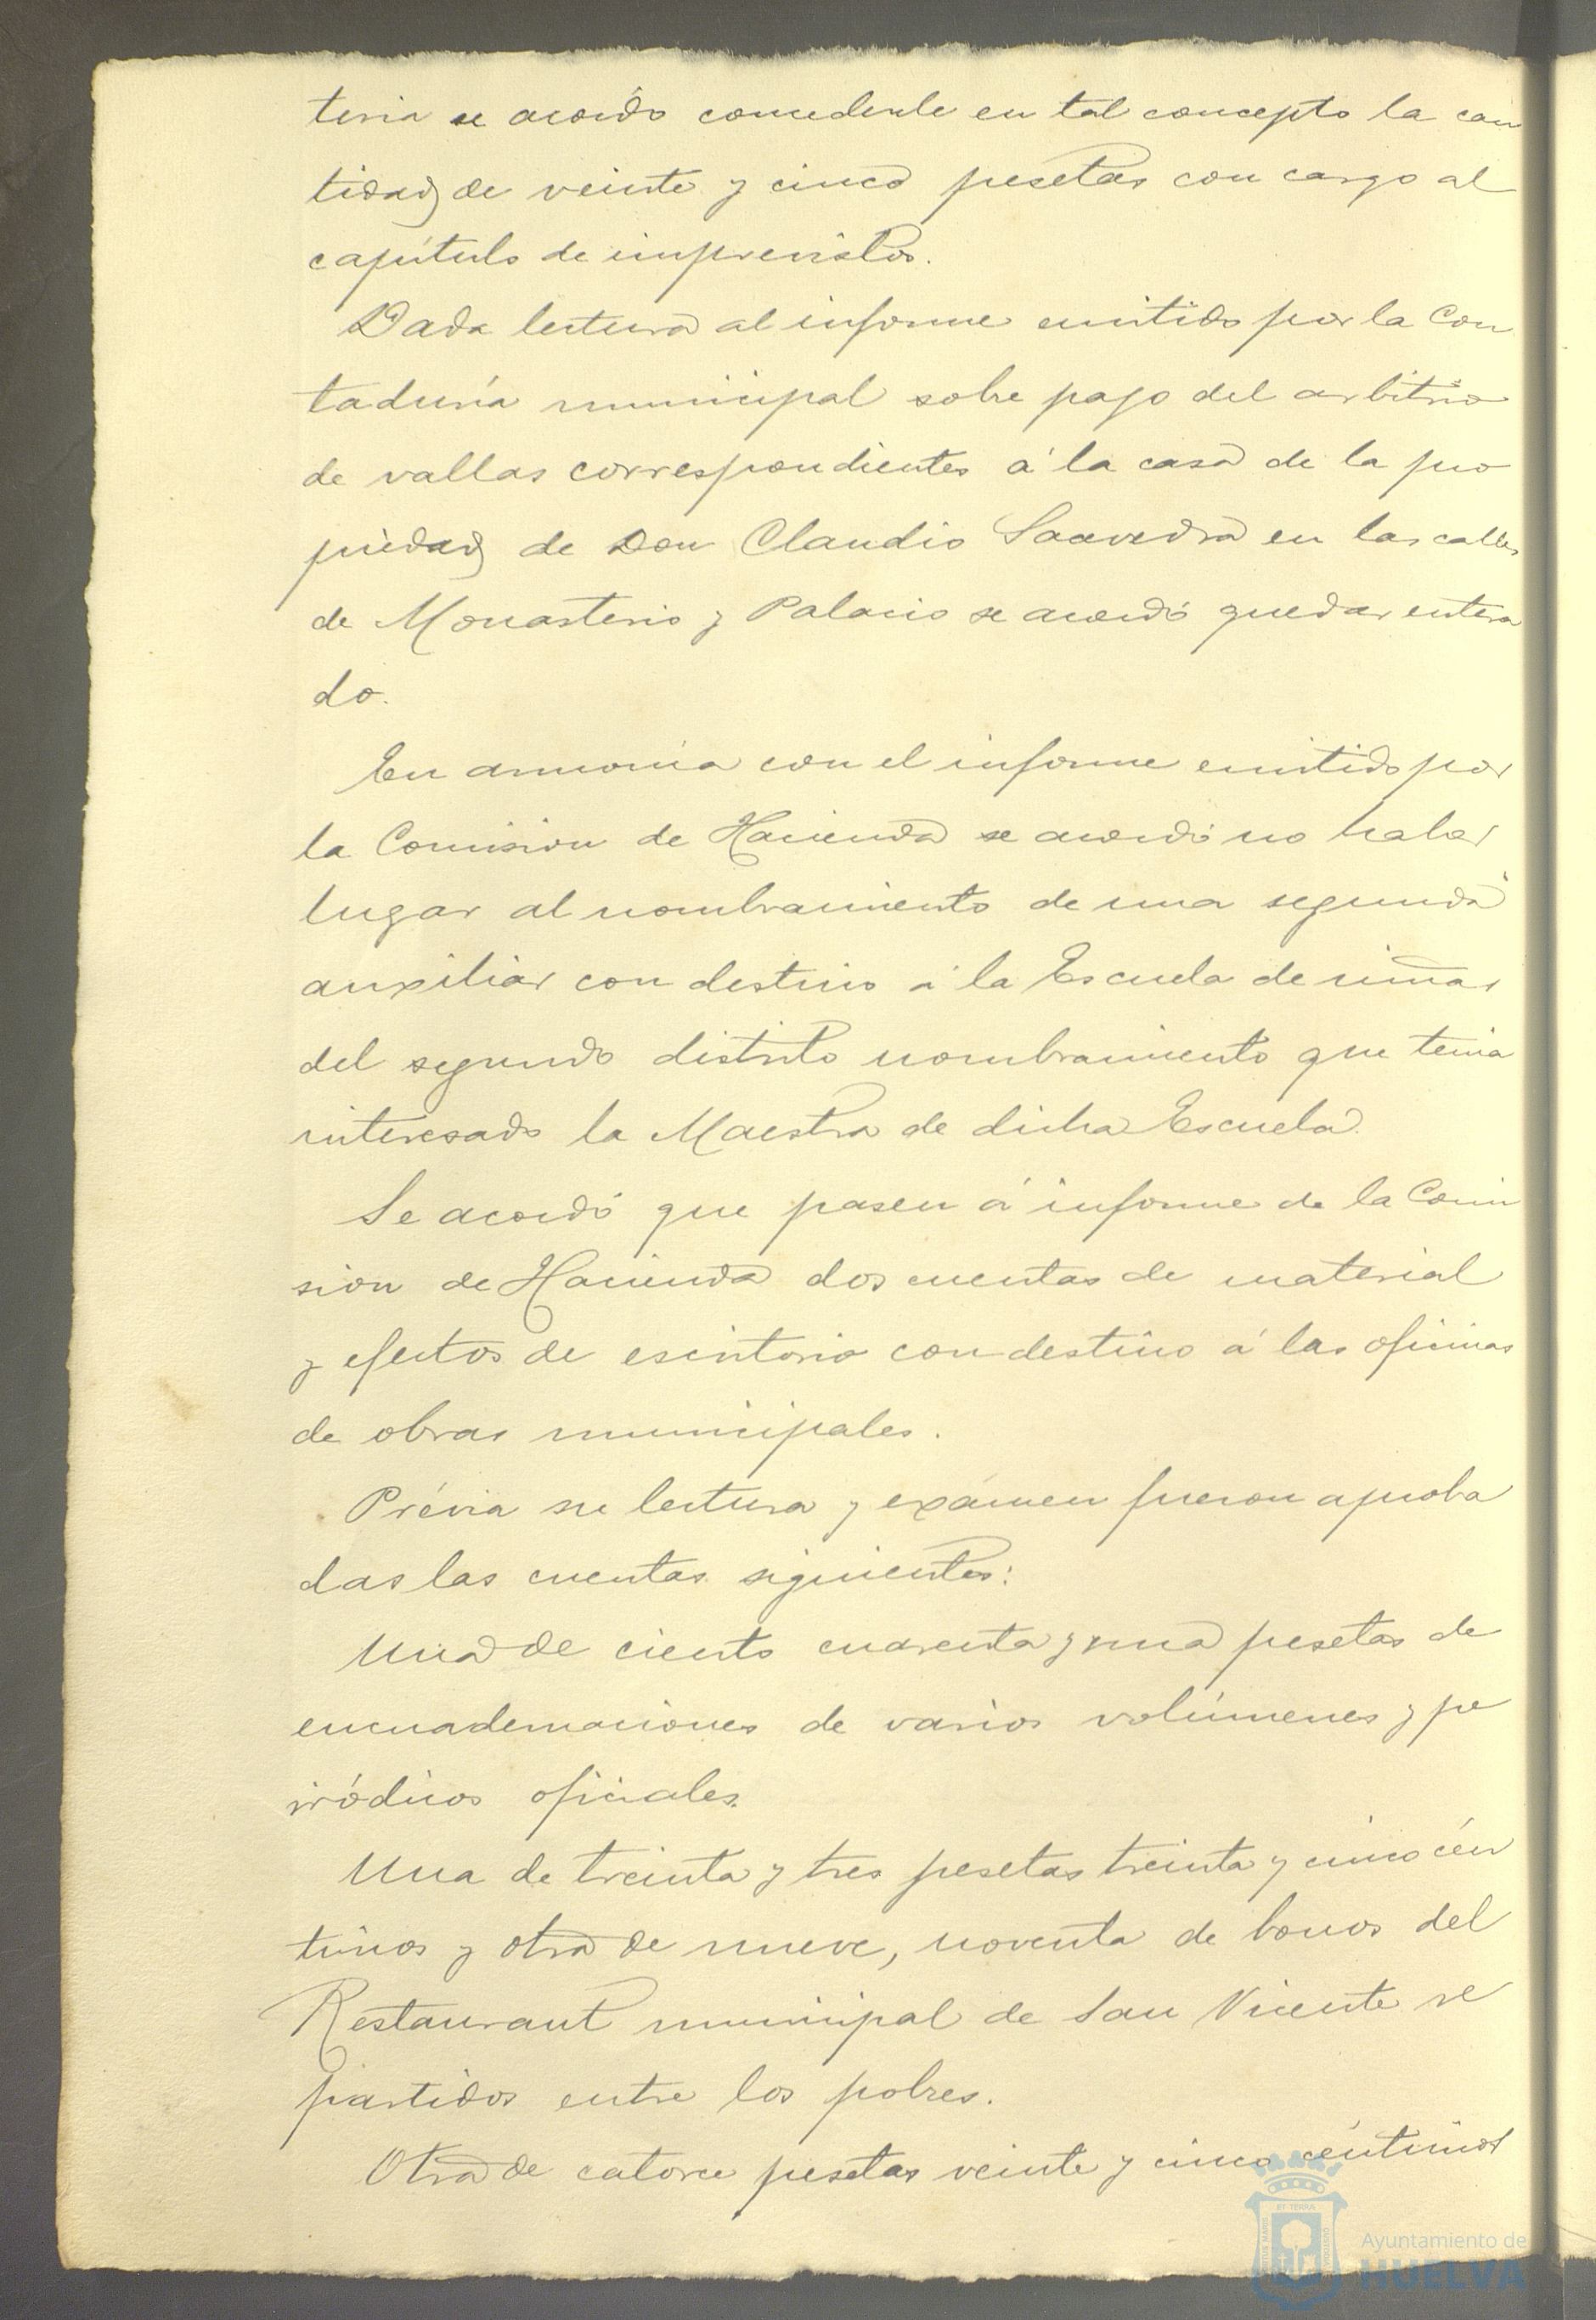 teria se acordó concederle en tal concepto la can
tidad de veinte y cinco pesetas con cargo al
capítulo de imprevistos.
Dada lectura al informe emitido por la Con
taduría municipal sobre pago del arbitrio
de vallas correspondientes á la casa de la pro
piedad de Don Claudio Saavedra en las calles
de Monasterio y Palacio se acordó quedar entera
do.
En armonía con el informe emitido por
la Comision de Hacienda se acordó no haber
lugar al nombramiento de una segunda
auxiliar con destino á la Escuela de niñas
del segundo distrito nombramiento que tenia
interesado la Maestra de dicha Escuela.
Se acordó que pasen á informe de la Comi
sion de Hacienda dos cuentas de material
y efectos de escritorio con destino á las oficinas
de obras municipales.
Prévia su lectura y exámen fueron aproba
das las cuentas siguientes:
Una de ciento cuarenta y una pesetas de
encuadernaciones de varios volúmenes y pe
riódicos oficiales.
Una de treinta y tres pesetas treinta y cinco cén
timos y otra de nueve, noventa de bonos del
Restaurant municipal de San Vicente re
partidos entre los pobres.
Otra de catorce pesetas veinte y cinco céntimos
Ayuntamiento de
HUELVA